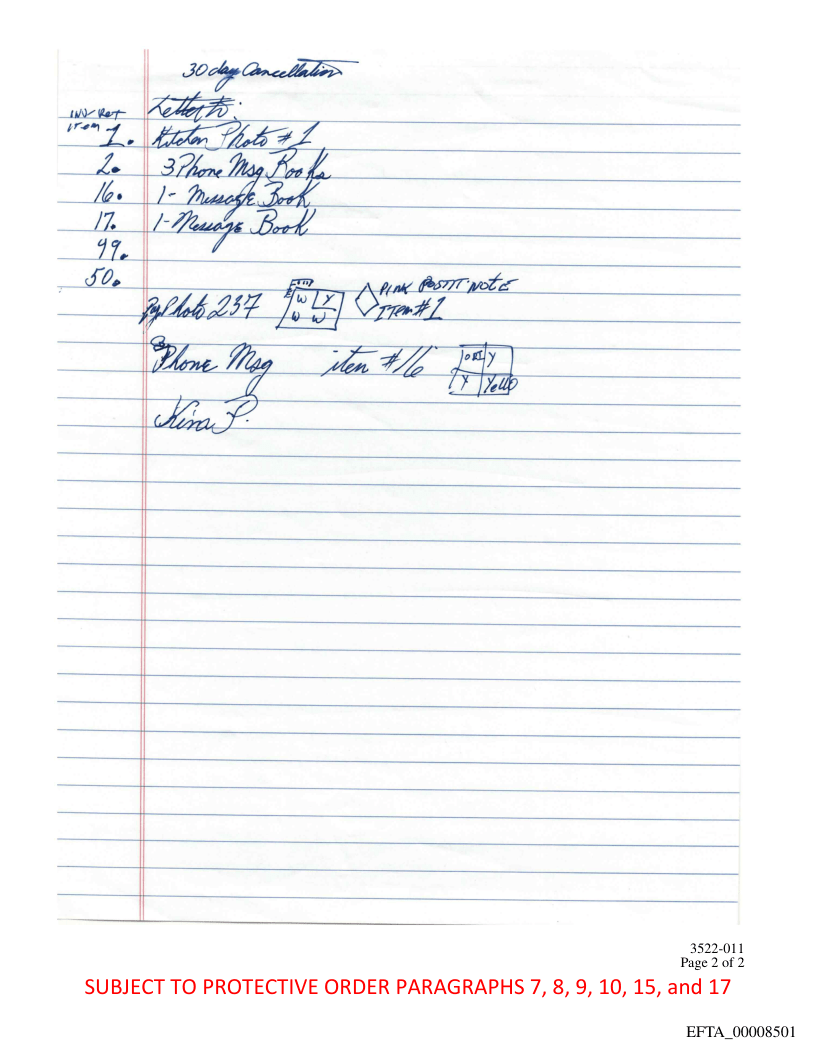 30 day Cancellation
Letter to:
Inv Ret
item 1. Kitchen Photo # 1
2. 3 Phone Msg Books
16. 1- Message Book
17. 1- Message Book
49.
50.
Photo 237 W Y W W PINK POSTIT NOTE
ITEM #1
Phone Msg item #16 ORI Y Y Yello
Kina P.
3522-011
Page 2 of 2
SUBJECT TO PROTECTIVE ORDER PARAGRAPHS 7, 8, 9, 10, 15, and 17
EFTA_00008501